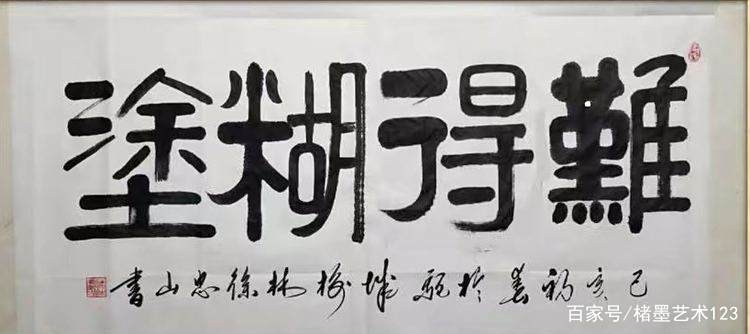 難得糊塗
己亥初春於驼城榆林徐忠山書
百家号/楮墨艺术123